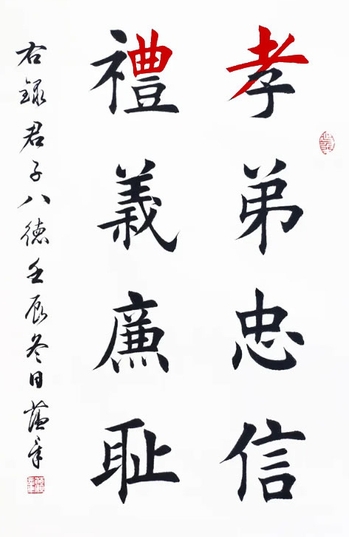 孝弟忠信
禮義廉耻
右錄君子八德壬辰冬日